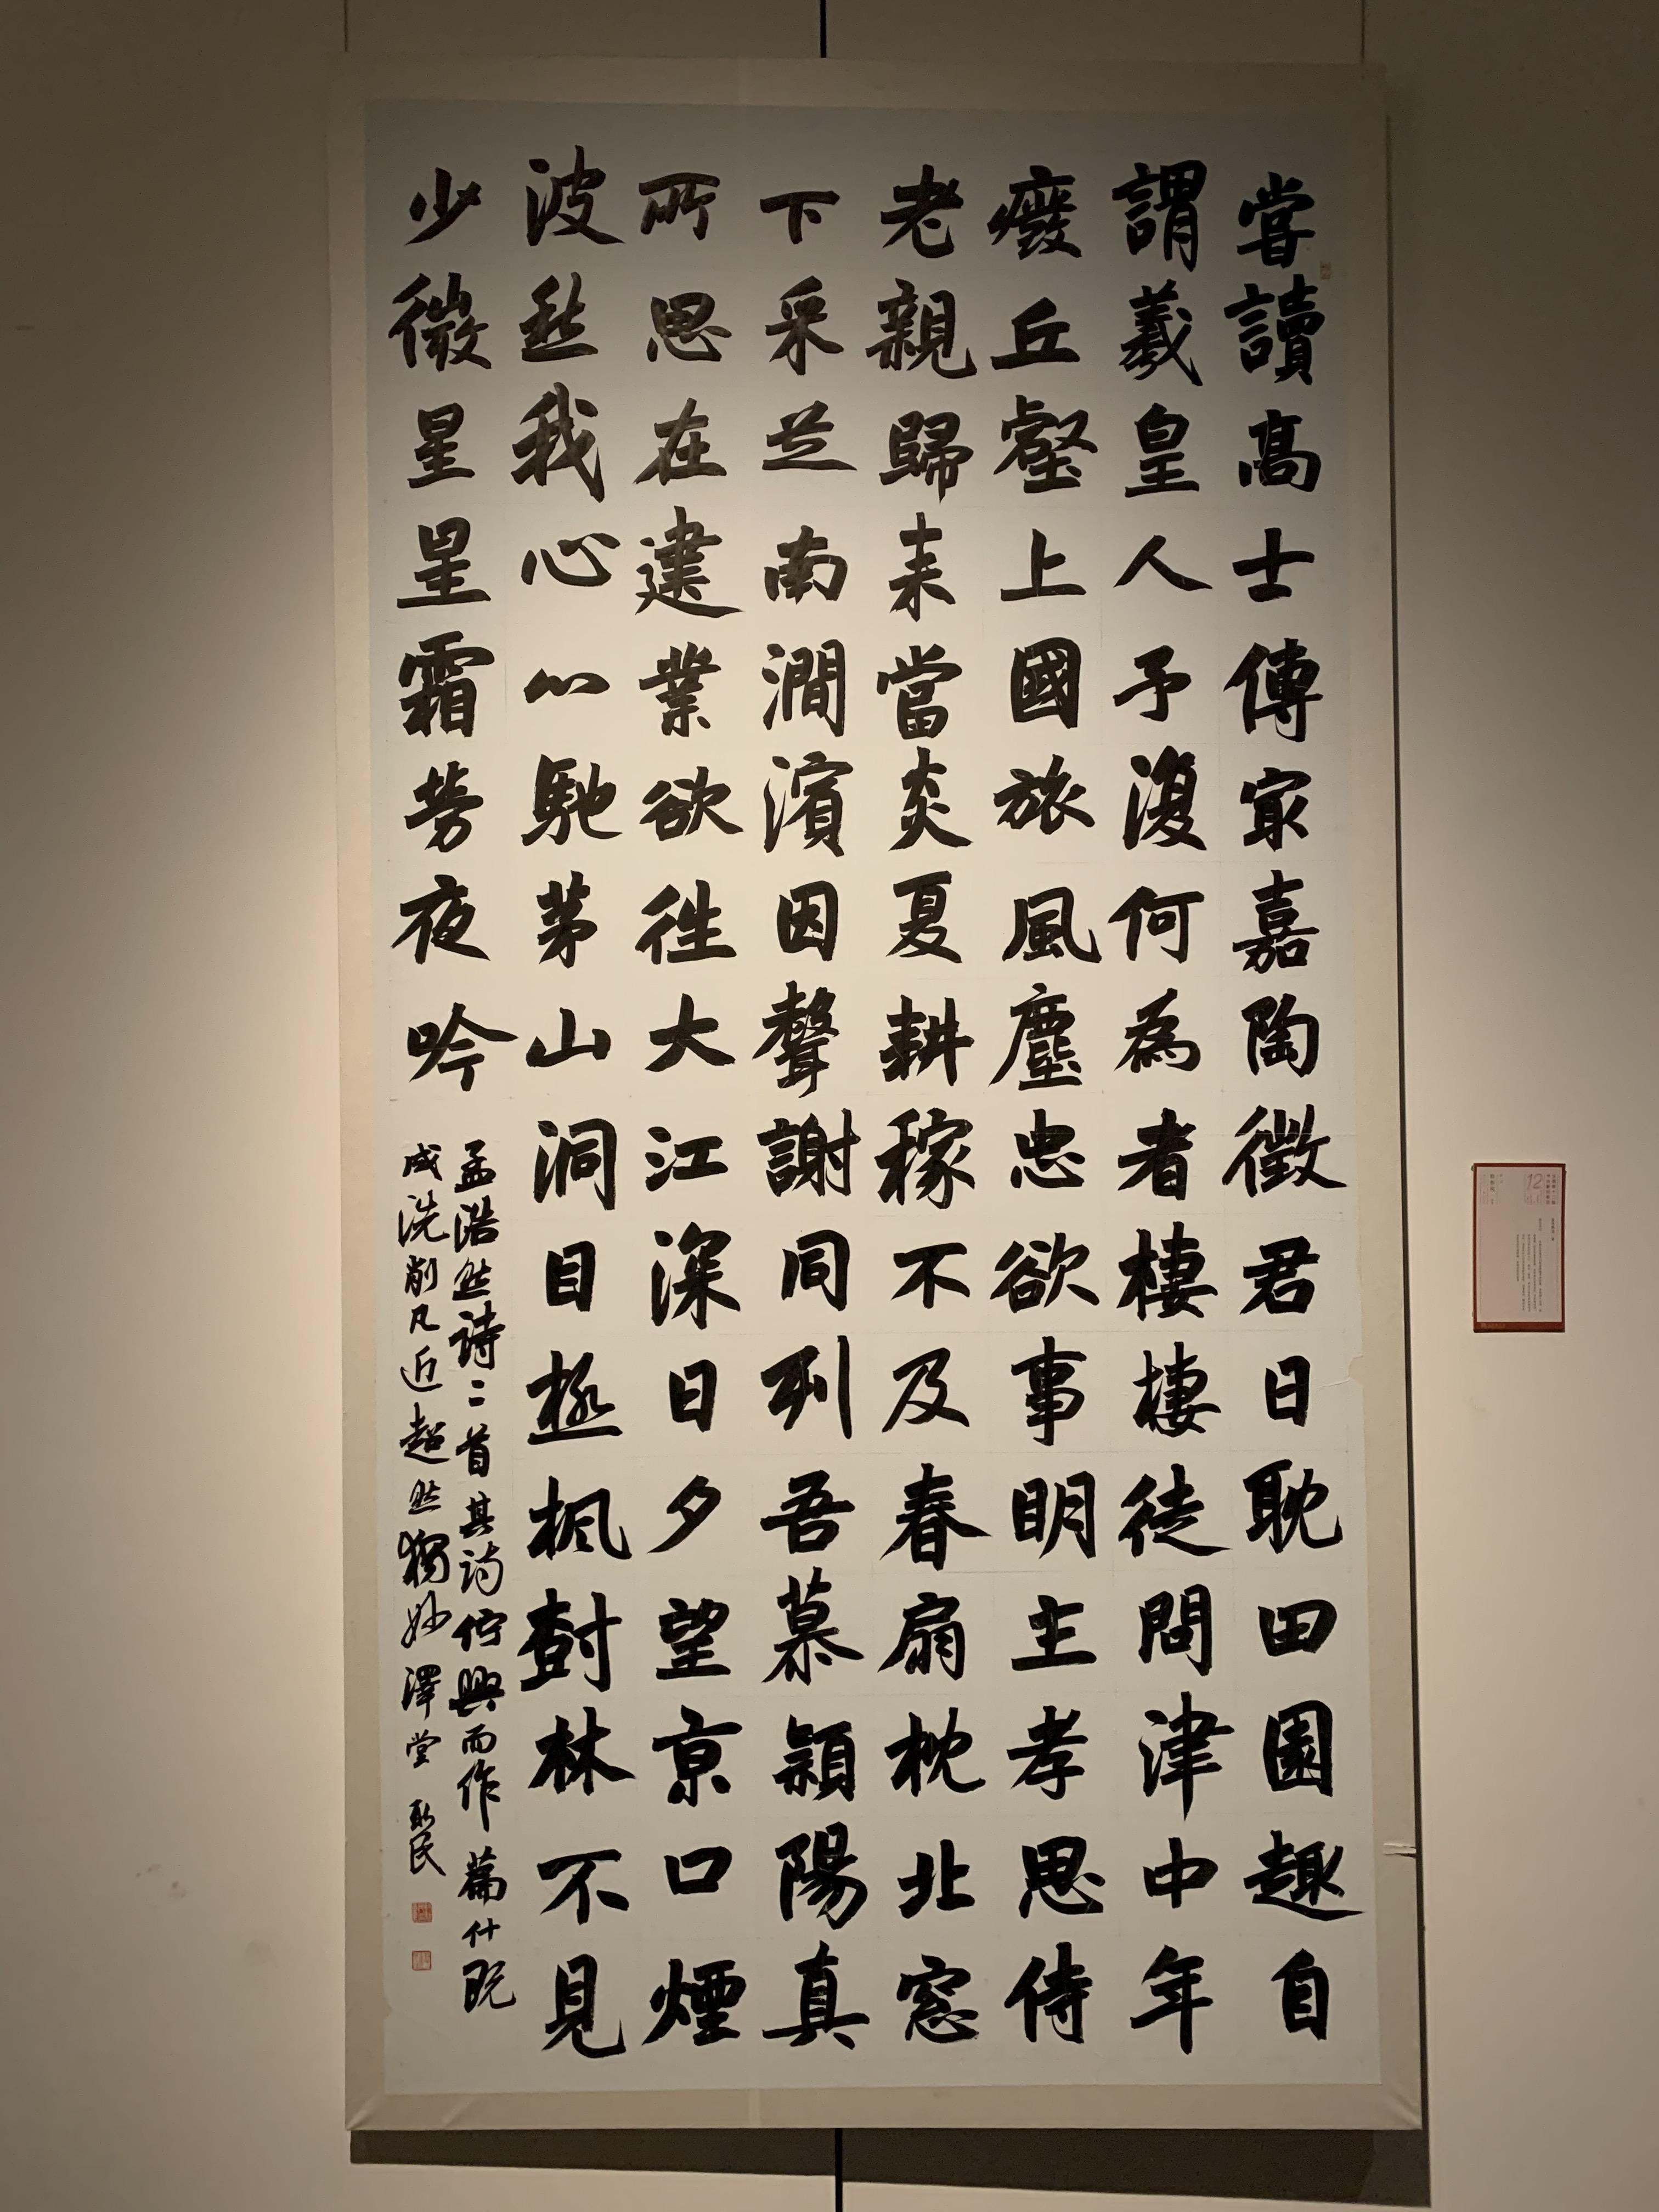 嘗讀高士傳家嘉陶徵君日耽田園趣自
謂羲皇人予復何為者棲棲徒問津中年
廢丘壑上國旅風塵忠欲事明主孝思侍
老親歸來當炎夏耕稼不及春扇枕北窓
下采芝南澗濱因聲謝同列吾慕潁陽真
所思在建業欲往大江深日夕望京口煙
波愁我心心馳茅山洞目極楓樹林不見
少微星星霜勞夜吟
孟浩然詩二首其詩佇興而作篇什既
成洗削凡近超然獨妙澤堂
12